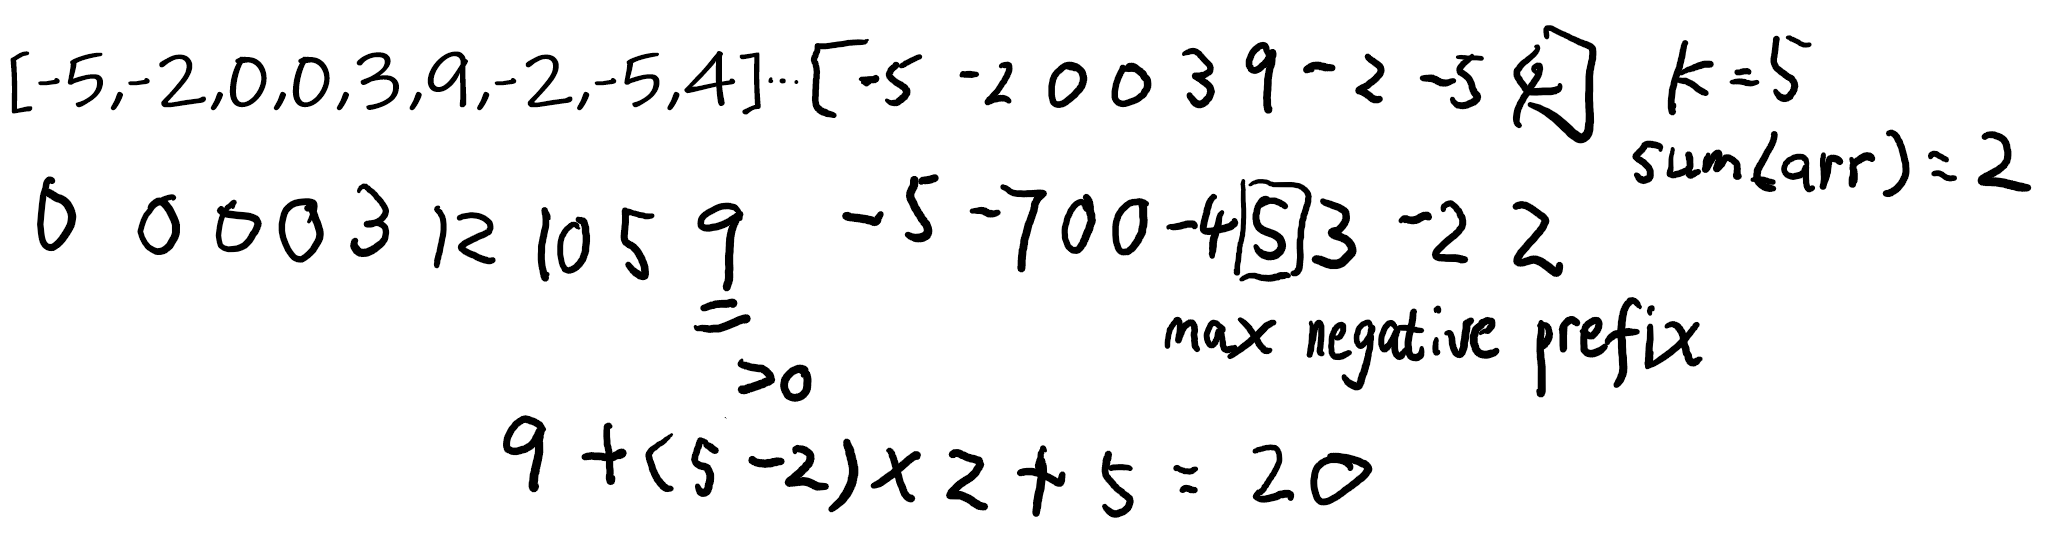 [-5,-2,0,0,3,9,-2,-5,4]...[-5 -2 0 0 3 9 -2 -5 4] k=5
sum(arr)=2
0 0 0 0 3 12 10 5 9 -5 -7 0 0 -4 5 3 -2 2
>0
max negative prefix
9+(5-2)×2+5=20